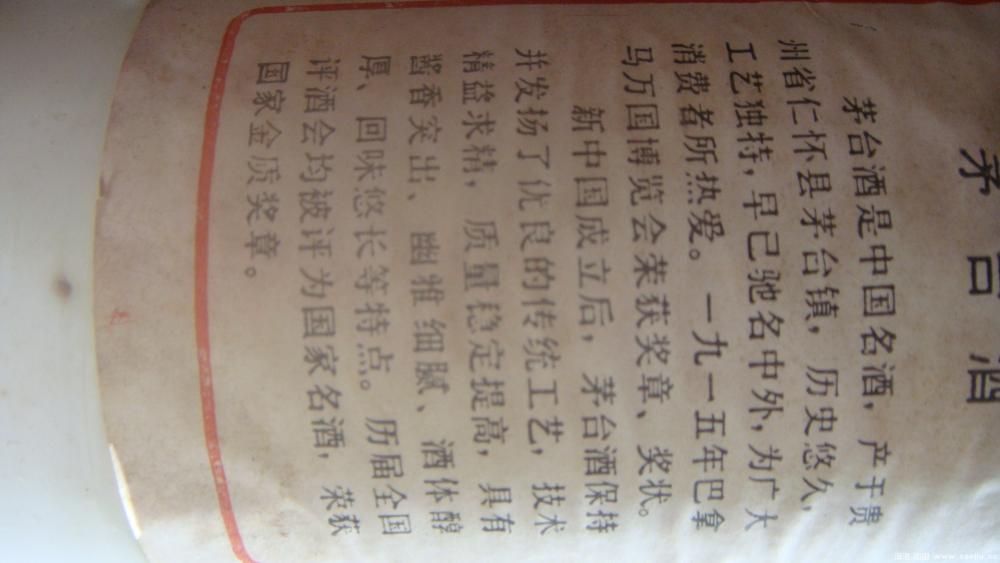 茅台酒
茅台酒是中国名酒，产于贵
州省仁怀县茅台镇，历史悠久，
工艺独特，早已驰名中外，为广大
消费者所热爱。一九一五年巴拿
马万国博览会荣获奖章、奖状。
新中国成立后，茅台酒保持
并发扬了优良的传统工艺，技术
精益求精，质量稳定提高，具有
酱香突出、幽雅细腻、酒体醇
厚、回味悠长等特点。历届全国
评酒会均被评为国家名酒，荣获
国家金质奖章。